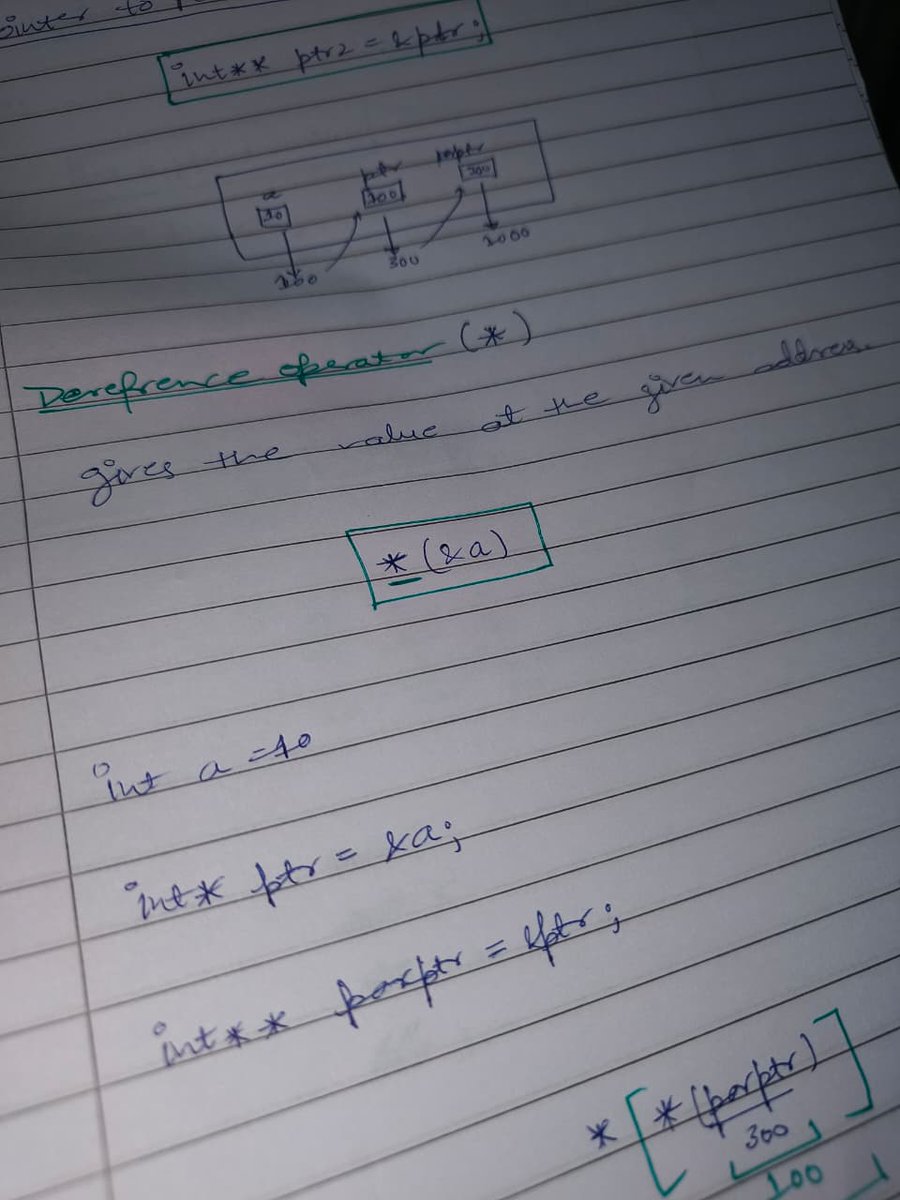 int** ptr2 = &ptr;
a ptr parptr
10 100 300
100 300 2000
Derefrence operator (*)
gives the value at the given address.
*(&a)
int a = 10
int* ptr = &a;
int** parptr = &ptr;
*[*(parptr)]
300
100